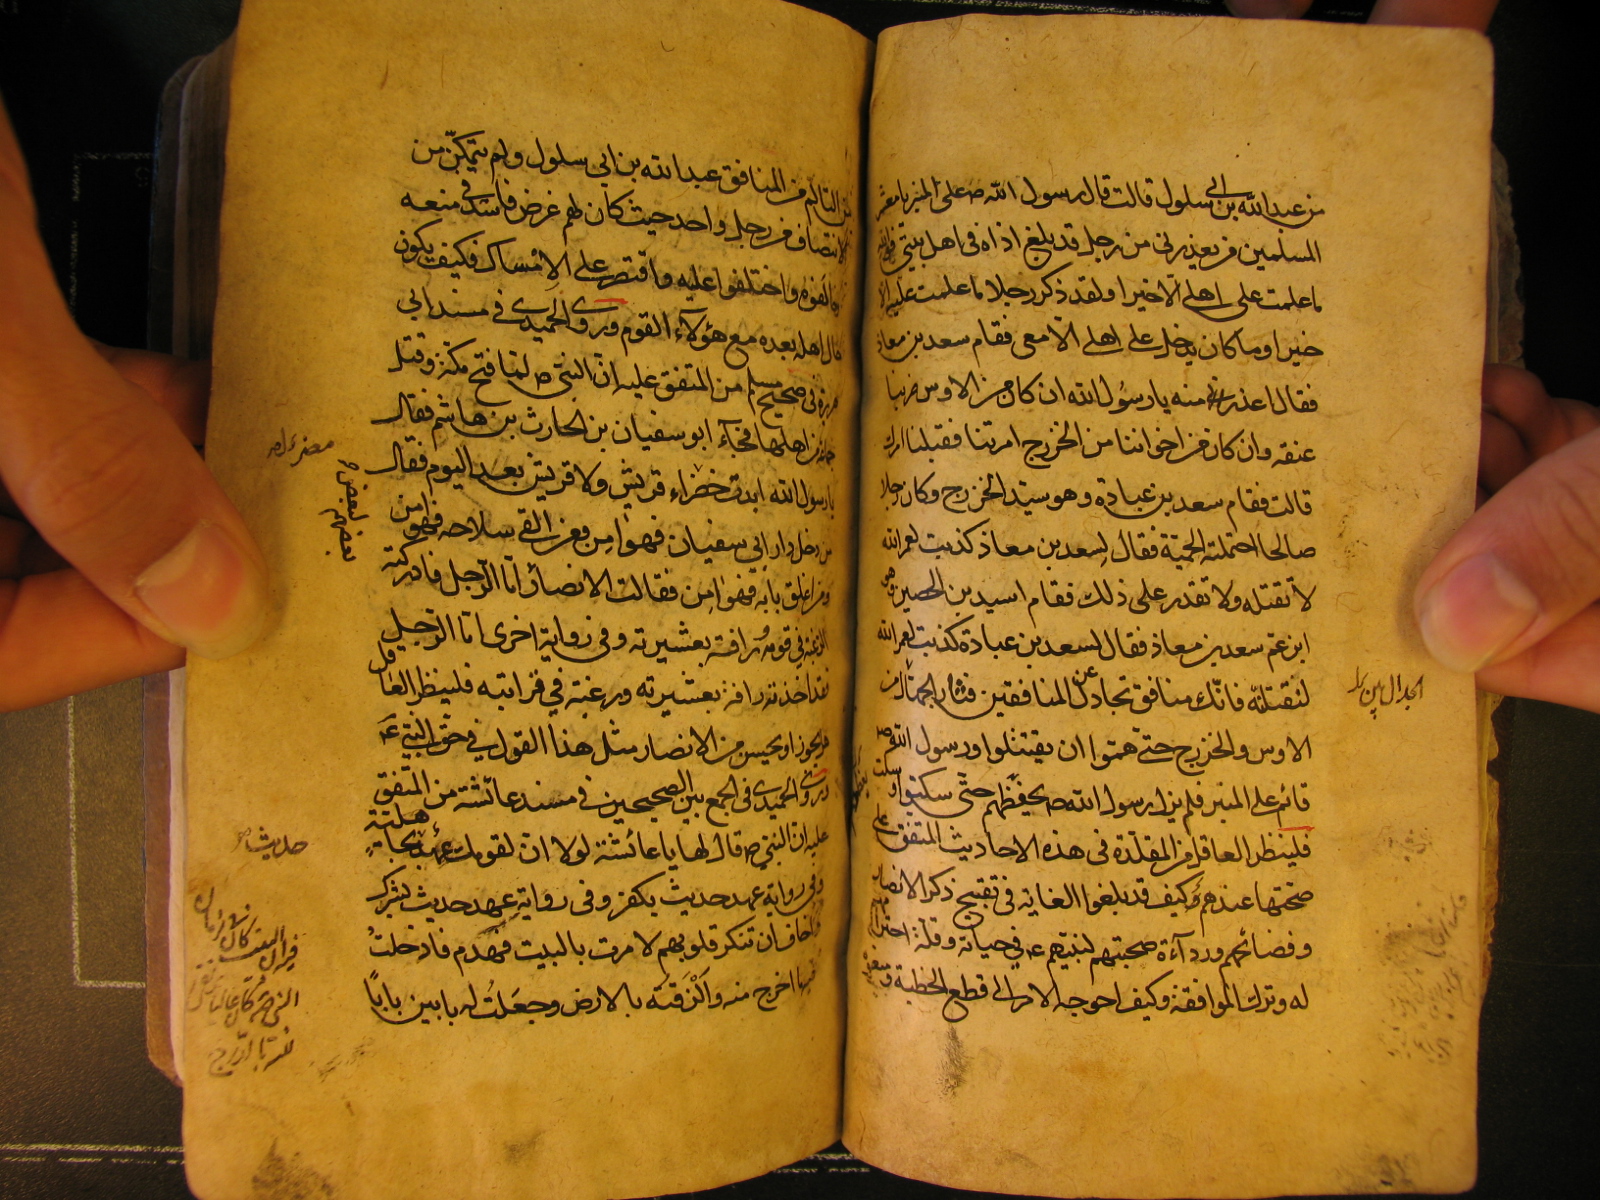 من عبدالله بن ابي سلول قالت قال رسول الله ص على المنبر يا معشر
المسلمين من يعذرني من رجل قد بلغ اذاه في اهل بيتي فوالله
ما علمت على اهلي الاخيرا ولقد ذكر رجلا ما علمت عليه الا
خيرا وما كان يدخل على اهلي الا معي فقام سعد بن معاذ
فقال اعذرك منه يا رسول الله ان كان من الاوس ضربنا
عنقه وان كان من اخواننا من الخزرج امرتنا ففعلنا امرك
قالت فقام سعد بن عبادة وهو سيد الخزرج وكان رجلا
صالحا احتملته الحمية فقال لسعد بن معاذ كذبت لعمر الله
لا تقتله ولا تقدر على ذلك فقام اسيد بن الحضير وهو
ابن عم سعد بن معاذ فقال لسعد بن عبادة كذبت لعمر الله
لنقتلنه فانك منافق تجادل عن المنافقين فثار الحيان
الاوس والخزرج حتى هموا ان يقتتلوا ورسول الله ص
قائم على المنبر فلم يزل رسول الله ص يخفضهم حتى سكتوا وسكت
فلينظر العاقل من المقلدة في هذه الاحاديث المتفق على
صحتها عندهم وكيف قد بلغوا الغاية في تقبيح ذكر الانصار
وفضائحهم ورداءة صحبتهم لنبيهم في حياته وقلة احترامهم
له وترك الموافقة وكيف احوجه الامر الى قطع الخطبة
الجدال بين
التالم من المنافق عبدالله بن ابي سلول ولم يتمكن من
الانتصاف من رجل واحد حيث كان لهم غرض فاسد في منعه
خالفوه واختلفوا عليه واقتصر على الامساك فكيف يكون
حال اهله بعده مع هؤلاء القوم وروى الحميدي في مسند ابي
هريرة في صحيح مسلم من المتفق عليه ان النبي ص لما فتح مكة وقتل
جماعة من اهلها فجاء ابو سفيان بن الحارث بن هاشم فقال
يا رسول الله ابدت خضراء قريش ولا قريش بعد اليوم فقال
من دخل دار ابي سفيان فهو امن ومن القى سلاحه فهو امن
ومن اغلق بابه فهو امن فقالت الانصار اما الرجل فادركته
الرغبة في قومه ورافة بعشيرته وفي رواية اخرى اما الرجل
فقد اخذته رافة بعشيرته ورغبة في قرابته فلينظر العاقل
هل يجوز او يحسن من الانصار مثل هذا القول في حق النبي
وروى الحميدي في الجمع بين الصحيحين في مسند عائشة من المتفق
عليه ان النبي ص قال لها يا عائشة لولا ان لقومك عهد بجاهلية
وفي رواية عهد حديث بكفر وفي رواية عهد حديث بشرك
واخاف ان تنكر قلوبهم لامرت بالبيت فهدم فادخلت
فيه ما اخرج منه والزقته بالارض وجعلت له بابين بابا
لبعض
بعضهم
حديث